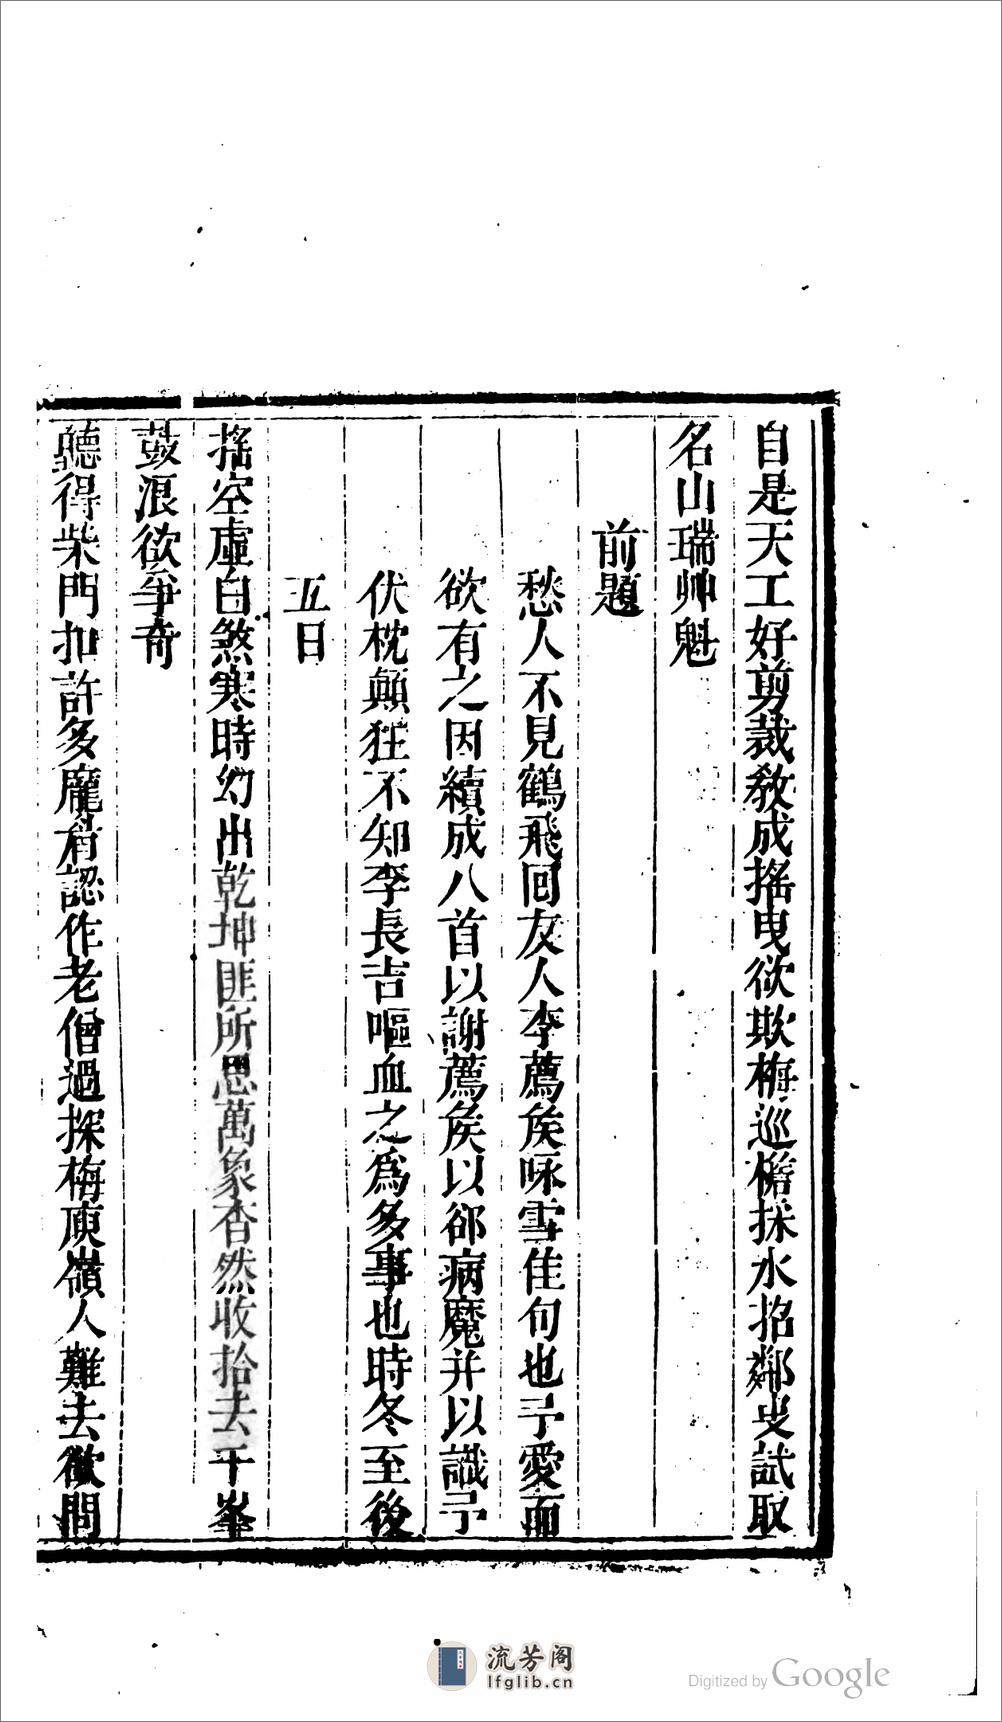 自是天工好剪裁教成搖曳欲欺梅巡檐採水招鄰叟試取
名山瑞艸魁
前題
愁人不見鶴飛回友人李薦矦咏雪佳句也予愛而
欲有之因續成八首以謝薦矦以郤病魔并以識予
伏枕顛狂不知李長吉嘔血之爲多事也時冬至後
五日
搖空虛白煞寒時幻出乾坤匪所思萬象杳然收拾去千峯
鼓浪欲爭奇
聽得柴門扣許多龐眉認作老僧過探梅庾嶺人難去欲問
流芳阁
lfglib.cn
Digitized by Google